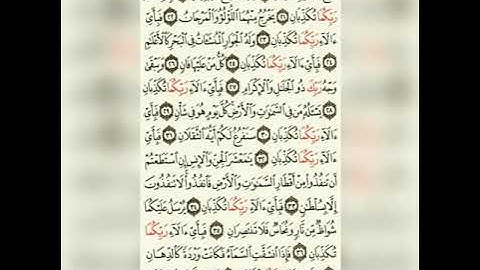 رَبِّكُمَا تُكَذِّبَانِ ٢١ يَخْرُجُ مِنْهُمَا اللُّؤْلُؤُ وَالْمَرْجَانُ ٢٢ فَبِأَيِّ
ءَالَآءِ رَبِّكُمَا تُكَذِّبَانِ ٢٣ وَلَهُ الْجَوَارِ الْمُنشَـَٔاتُ فِي الْبَحْرِ كَالْأَعْلَٰمِ
٢٤ فَبِأَيِّ ءَالَآءِ رَبِّكُمَا تُكَذِّبَانِ ٢٥ كُلُّ مَنْ عَلَيْهَا فَانٍ ٢٦ وَيَبْقَىٰ
وَجْهُ رَبِّكَ ذُو الْجَلَٰلِ وَالْإِكْرَامِ ٢٧ فَبِأَيِّ ءَالَآءِ رَبِّكُمَا تُكَذِّبَانِ
٢٨ يَسْـَٔلُهُ مَن فِي السَّمَٰوَٰتِ وَالْأَرْضِ كُلَّ يَوْمٍ هُوَ فِي شَأْنٍ ٢٩ فَبِأَيِّ
ءَالَآءِ رَبِّكُمَا تُكَذِّبَانِ ٣٠ سَنَفْرُغُ لَكُمْ أَيُّهَ الثَّقَلَانِ ٣١ فَبِأَيِّ
ءَالَآءِ رَبِّكُمَا تُكَذِّبَانِ ٣٢ يَٰمَعْشَرَ الْجِنِّ وَالْإِنسِ إِنِ اسْتَطَعْتُمْ
أَن تَنفُذُوا مِنْ أَقْطَارِ السَّمَٰوَٰتِ وَالْأَرْضِ فَانفُذُوا لَا تَنفُذُونَ
إِلَّا بِسُلْطَٰنٍ ٣٣ فَبِأَيِّ ءَالَآءِ رَبِّكُمَا تُكَذِّبَانِ ٣٤ يُرْسَلُ عَلَيْكُمَا
شُوَاظٌ مِّن نَّارٍ وَنُحَاسٌ فَلَا تَنتَصِرَانِ ٣٥ فَبِأَيِّ ءَالَآءِ رَبِّكُمَا
تُكَذِّبَانِ ٣٦ فَإِذَا انشَقَّتِ السَّمَآءُ فَكَانَتْ وَرْدَةً كَالدِّهَانِ